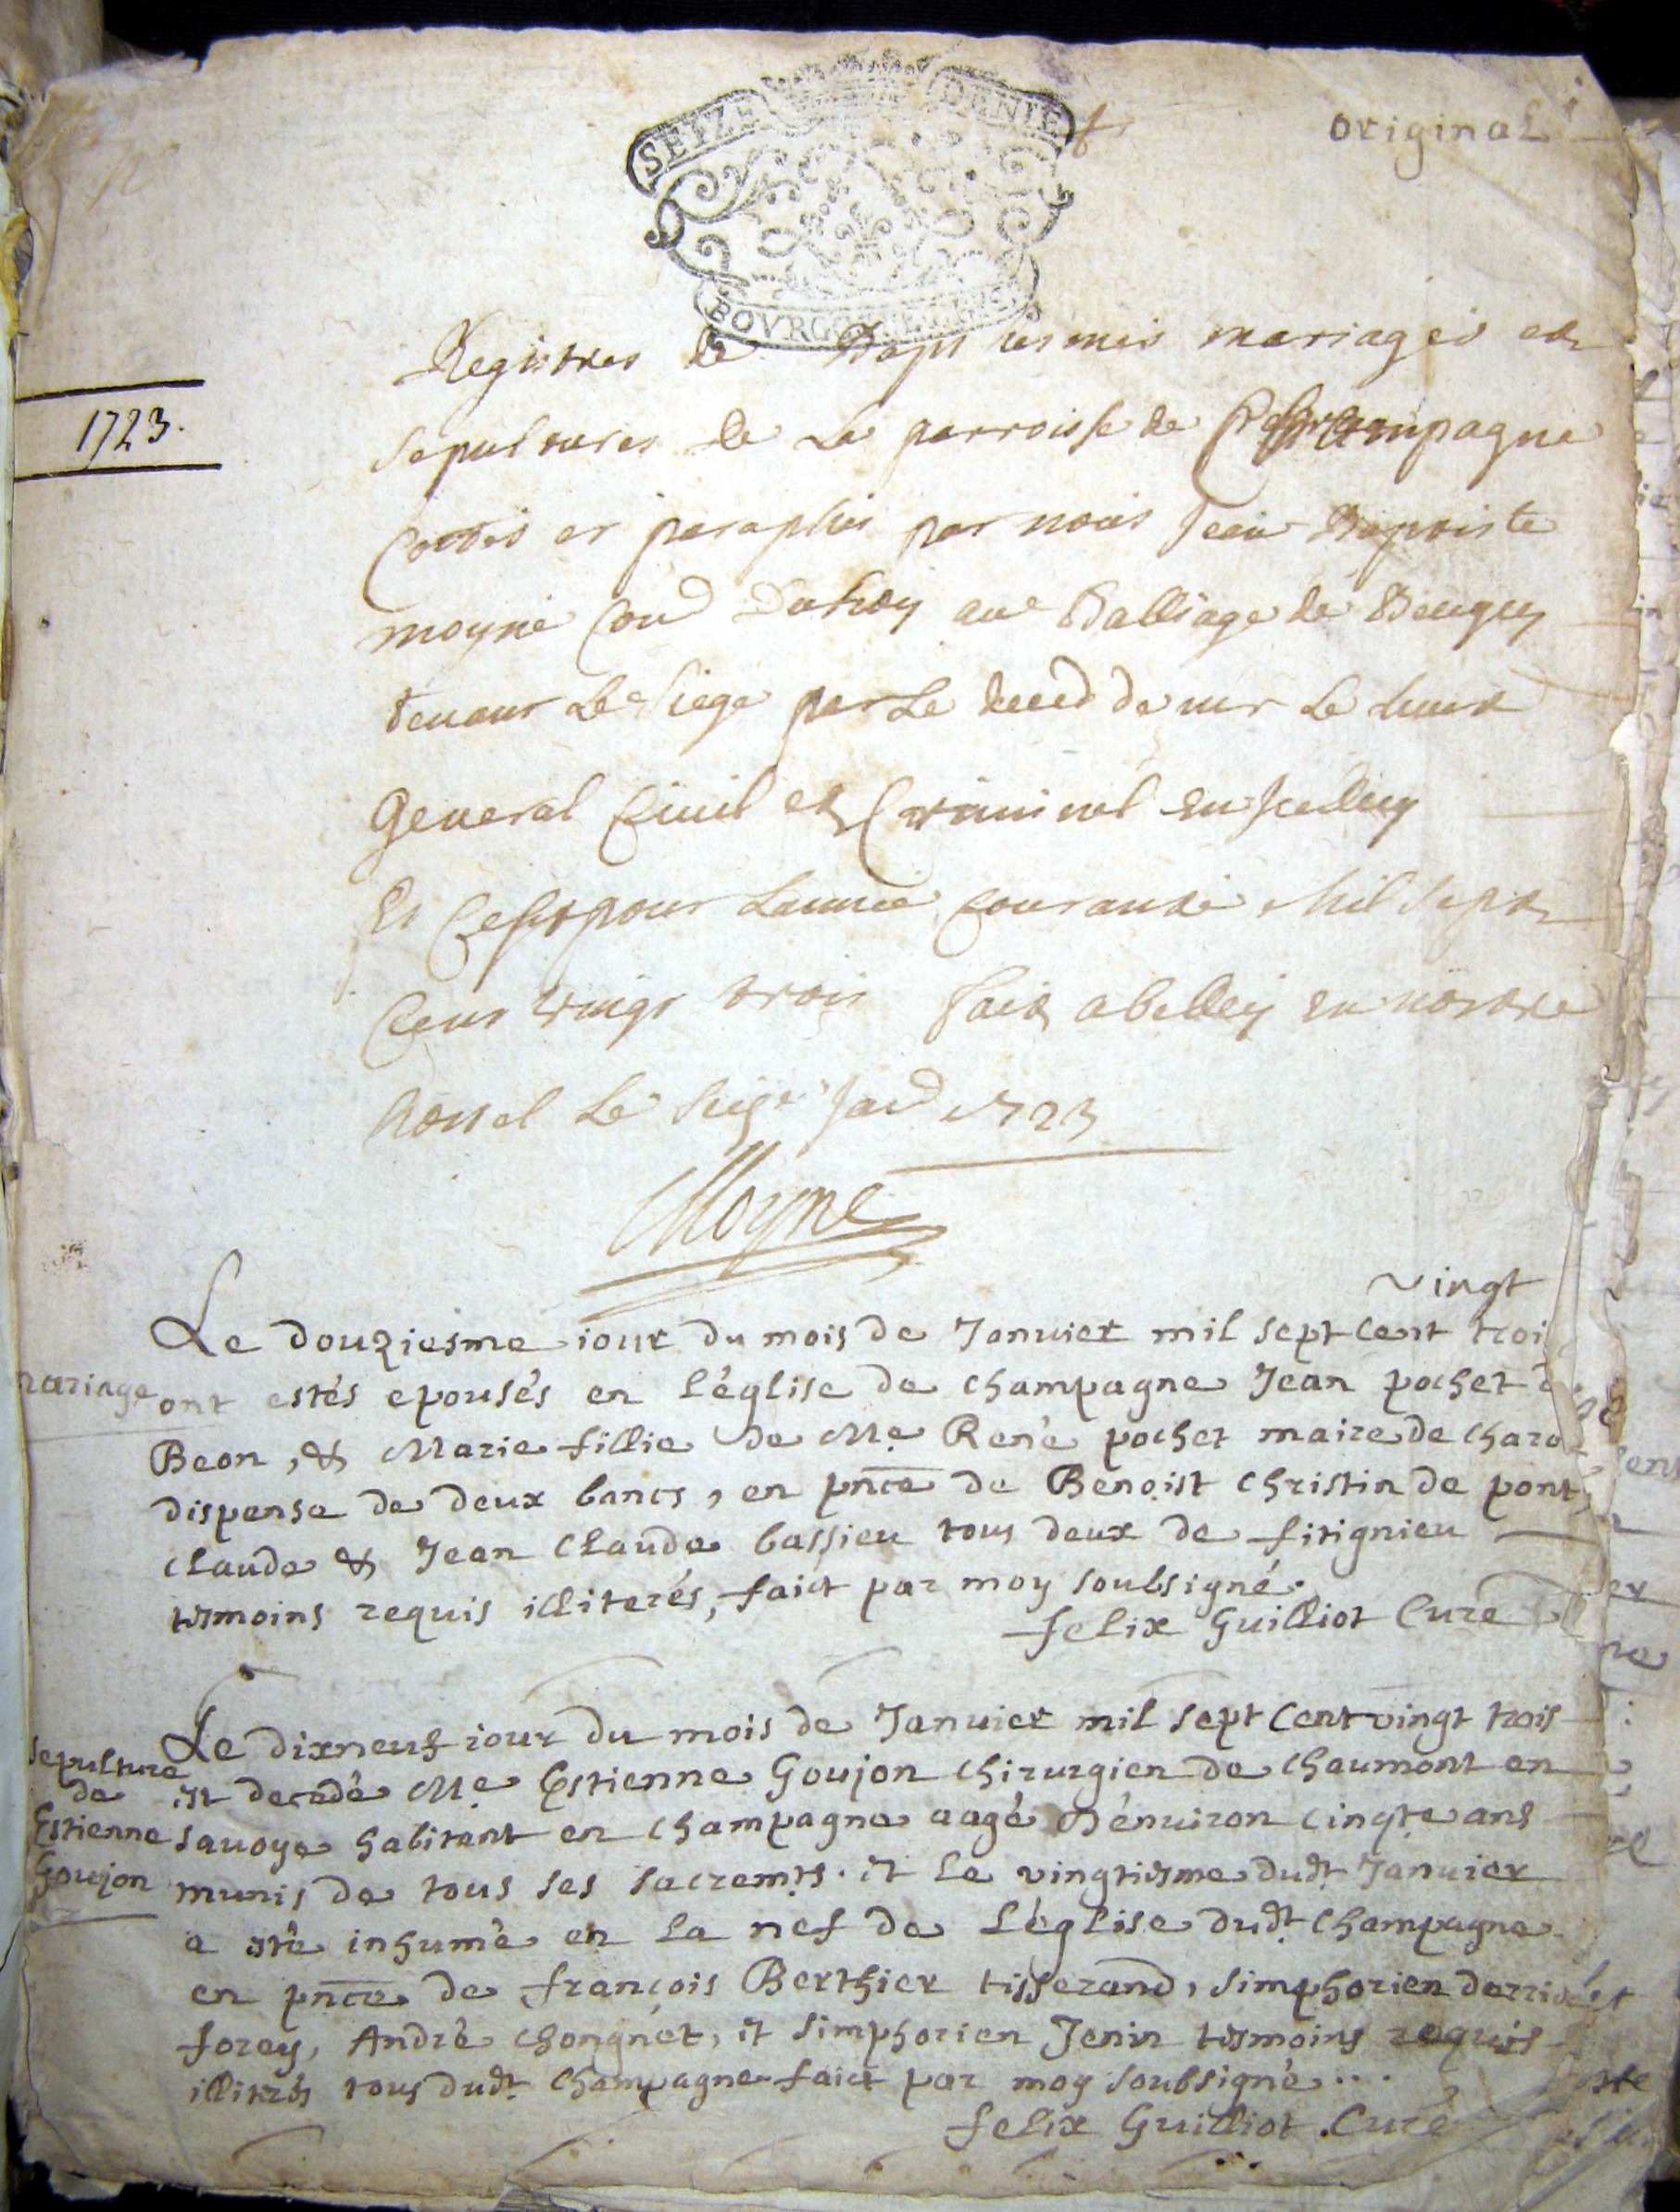 SEIZE DENIE
original
BOVRG
Registres de Baptesmes mariages et
1723.
sepultures de La parroisse de Champagne
Cottés et paraphés par nous Jean Baptiste
moyne Con.d Du Roy au Balliage de Beugey
tenant Le siege par Le deced de mr Le lieut
General Civil et Criminel en Jcelluy
Et Cest pour Lannee Courante Mil Sept
Cent vingt trois fait a belley en nostre
hostel Le Janv.d 1723
Moyne
vingt
Le douziesme iour du mois de Januier mil sept cent troi
mariage
ont estés epousés en l'église de Champagne Jean pochet d
Beon, & Marie fillie de Me René pochet maire de Charo
dispense de deux bancs, en pnce de Benoist Christin de pont,
Claude & Jean Claude bassieu tous deux de fitignieu
tesmoins requis illiterés, faict par moy soubsigné.
felix Guilliot Curé
Le dixneuf iour du mois de Januier mil sept Cent vingt trois
sepulture de Estienne Goujon
est decedé Me Estienne Goujon Chirurgien de Chaumont en
sauoye habitant en Champagne aagé d'énuiron Cinqte ans
munis de tous ses sacremts. et le vingtiesme dudt Januier
a esté inhumé en la nef de L'église dudt Champagne
en pnce de françois Berthier tisserand, simphorien
forey, André Chongnet, et simphorien Jenin tesmoins requis
illiterés tous dudt Champagne faict par moy soubsigné...
felix Guilliot Curé